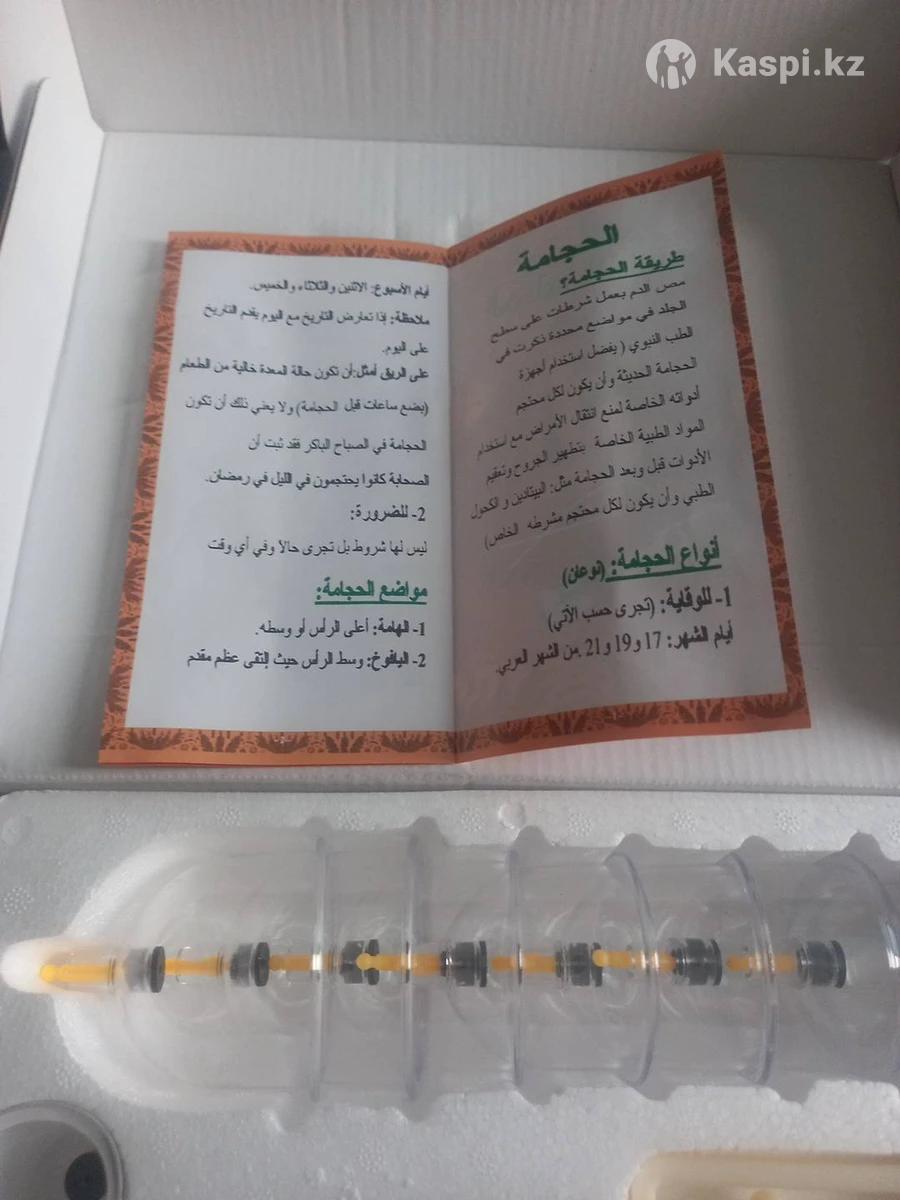 Kaspi.kz
الحجامة
طريقة الحجامة؟
مص الدم بعمل شرطات على سطح
الجلد في مواضع محددة ذكرت في
الطب النبوي ( يفضل استخدام أجهزة
الحجامة الحديثة وأن يكون لكل محتجم
أدواته الخاصة لمنع انتقال الأمراض مع استخدام
المواد الطبية الخاصة بتطهير الجروح وتعقيم
الأدوات قبل وبعد الحجامة مثل: البيتادين و الكحول
الطبي وأن يكون لكل محتجم مشرطه الخاص)
أنواع الحجامة: (نوعان)
1- للوقاية: (تجرى حسب الآتي)
أيام الشهر: 17 و19 و21 من الشهر العربي.
أيام الأسبوع: الاثنين والثلاثاء والخميس.
ملاحظة: إذا تعارض التاريخ مع اليوم يقدم التاريخ
على اليوم.
على الريق أمثل:أن تكون حالة المعدة خالية من الطعام
(بضع ساعات قبل الحجامة) ولا يعني ذلك أن تكون
الحجامة في الصباح الباكر فقد ثبت أن
الصحابة كانوا يحتجمون في الليل في رمضان.
2- للضرورة:
ليس لها شروط بل تجرى حالاً وفي أي وقت
مواضع الحجامة:
1- الهامة: أعلى الرأس أو وسطه.
2- اليافوخ: وسط الرأس حيث إلتقى عظم مقدم